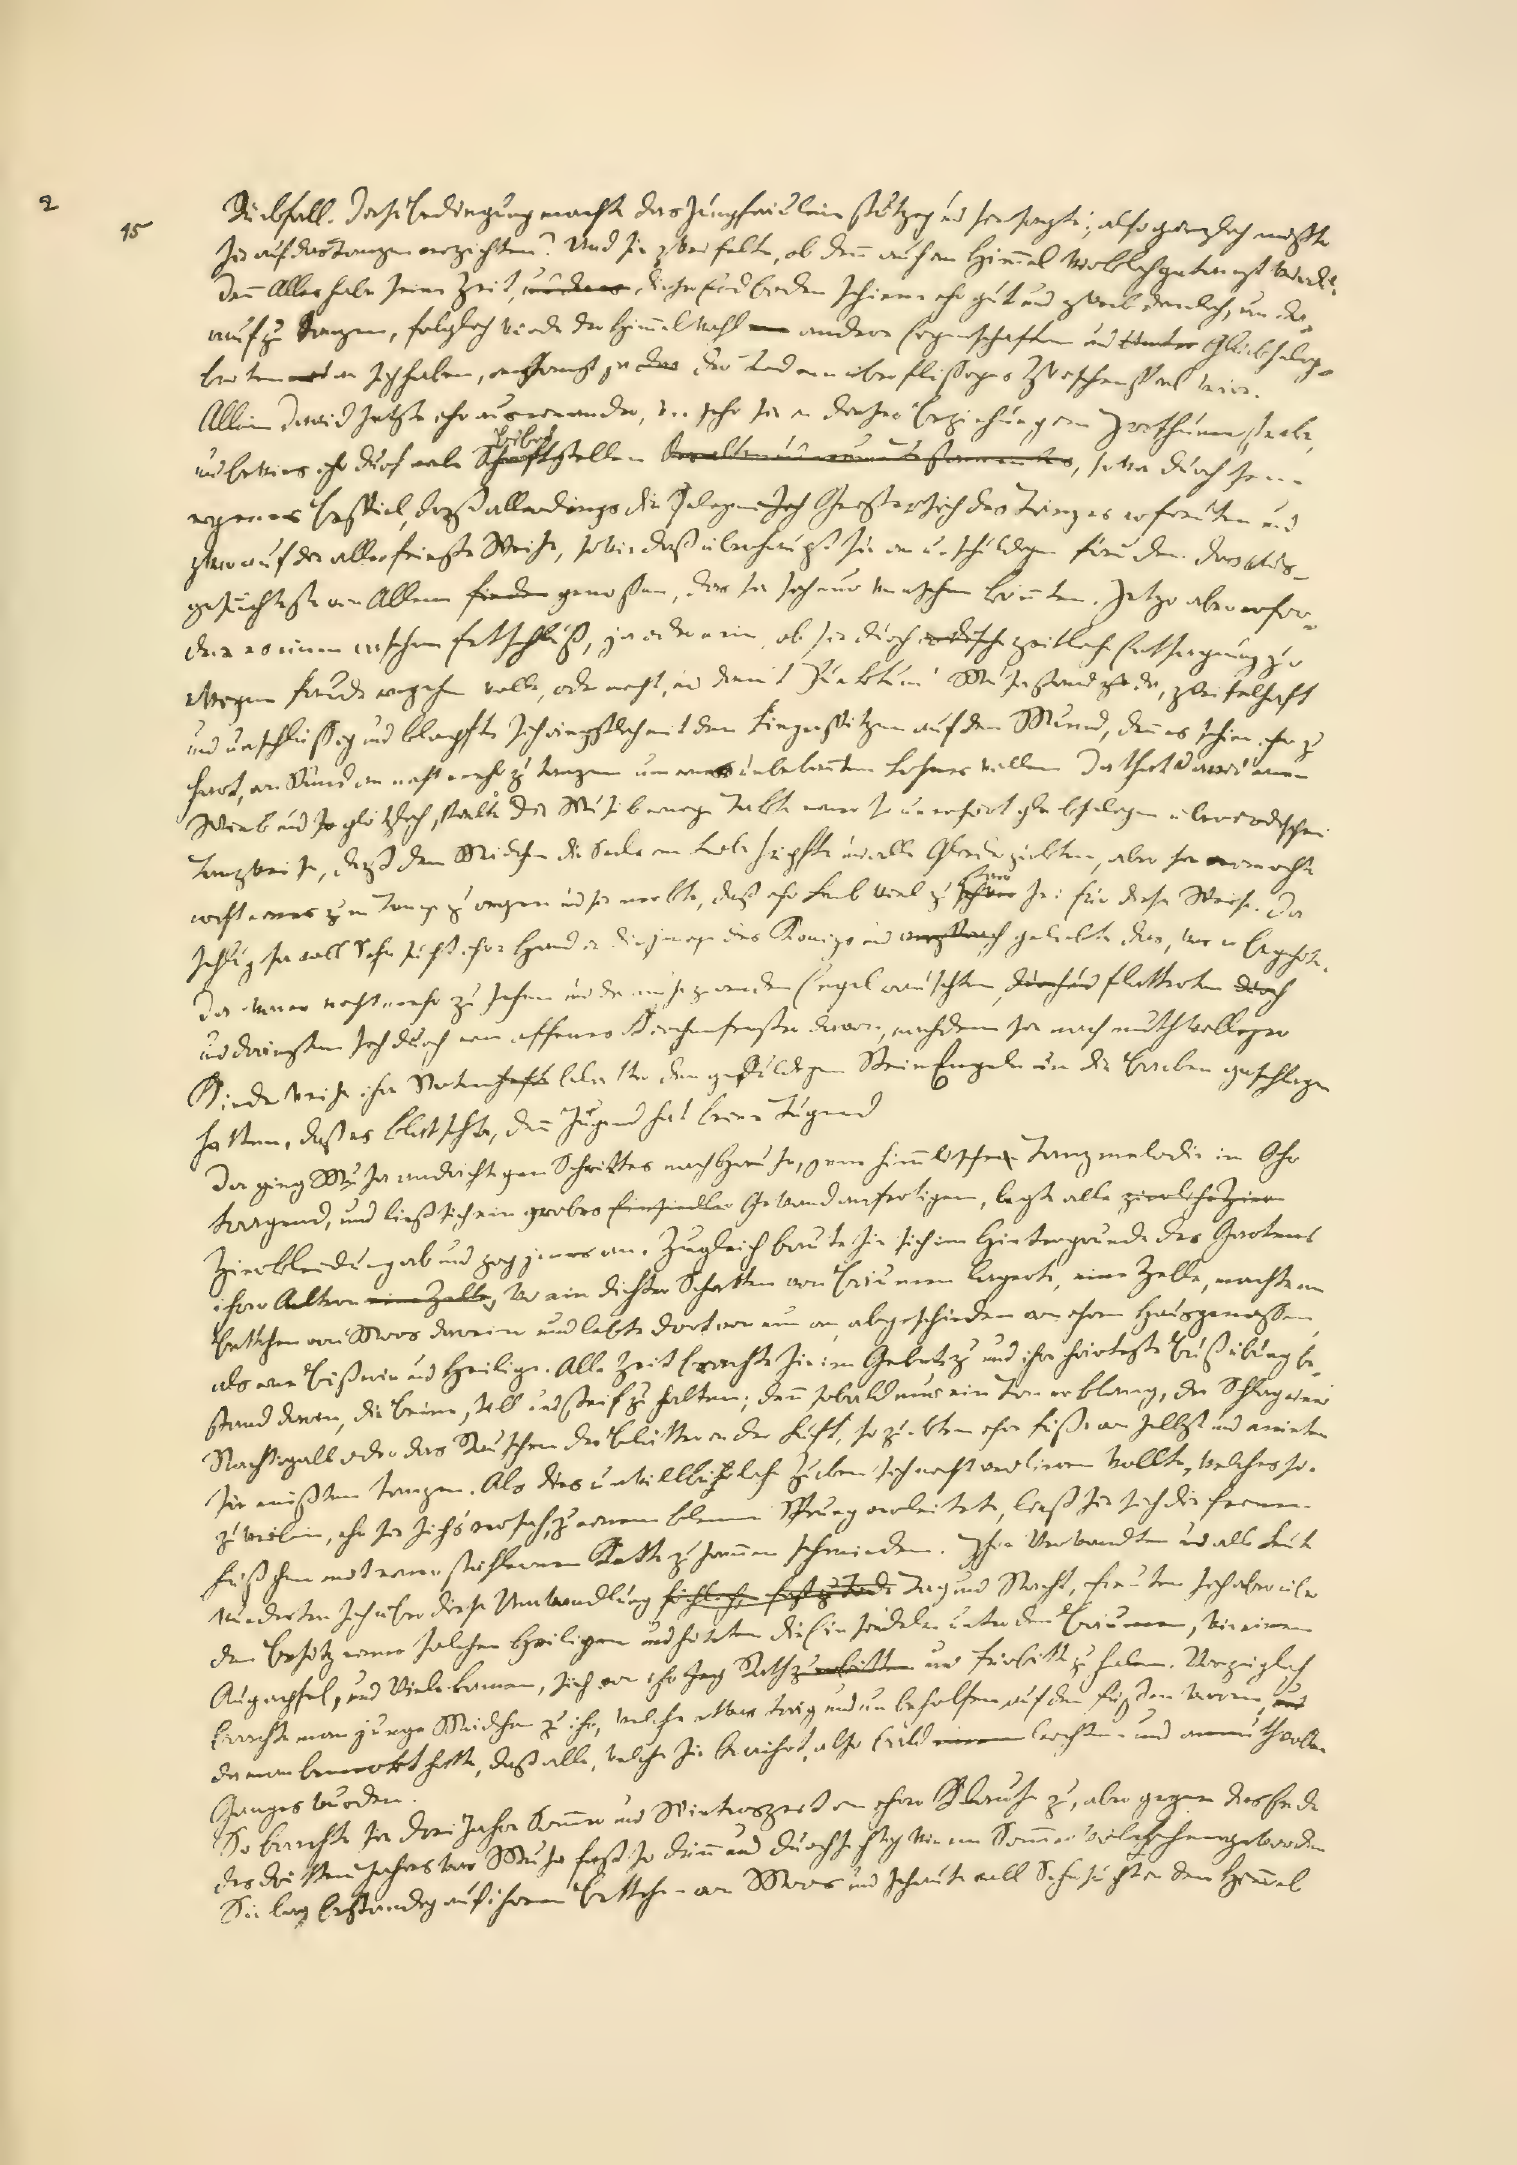 2
15
Rückfall. Diese Bedingung machte das Jungfräulein stutzig und sie sagte; also gänzlich müßte
sie auf das Tanzen verzichten? Und sie zweifelte, ob denn auch im Himmel wirklich getanzt würde?
denn Alles habe seine Zeit, dieser Erdboden schiene ihr gut und zweckdienlich, um da-
auf zu tanzen, folglich würde der Himmel wohl andere Eigenschaften und Glückselig-
keiten an sich haben, ansonst ja der Tod ein überflüssiges Zwischenspiel wäre.
Allein David setzte ihr auseinander, wie sehr sie in dieser Beziehung im Irrthum stecke,
und bewies ihr durch viele Bibelstellen, sowie durch sein
eigenes Beispiel, daß allerdings die seligen Geister sich des Tanzes erfreuten und
zwar auf die allerfeinste Weise, sowie daß überhaupt sie an unschuldigen Freuden das Aus-
gesuchteste von Allem genossen, das sie sich nur wünschen könnten. Jetzo aber erfor-
dere es einen raschen Entschluß, ja oder nein, ob sie durch zeitliche Entsagung zur
ewigen Freude eingehn wolle, oder nicht, und damit Punktum! Musa stand da, zweifelhaft
und unschlüssig und klopfte sich ängstlich mit den Fingerspitzen auf den Mund, denn es schien ihr zu
hart, von Stund an nicht mehr zu tanzen um eines unbekannten Lohnes willen. Da that David einen
Wink und plötzlich spielte die Musik einige Takte einer so unerhört glückseligen überirdischen
Tanzweise, daß dem Mädchen die Seele im Leibe hüpfte und alle Glieder zuckten, aber sie vermochte
nicht eines zum Tanze zu regen und sie merkte, daß ihr Leib viel zu schwer sei für diese Weise. Da
schlug sie voll Sehnsucht ihre Hand in diejenige des Königs und gelobte das, was er begehrte.
Da war er nicht mehr zu sehen und die musizirenden Engel rauschten, flatterten
und drängten sich durch ein offenes Kirchenfenster davon, nachdem sie nach muthwilliger
Kinderweise ihre Notenblätter den geduldigen Steinengeln um die Backen geschlagen
hatten, daß es klatschte, denn Jugend hat keine Tugend
Da ging Musa andächtigen Schrittes nach Hause, jene himmlische Tanzmelodie im Ohr
tragend, und ließ sich ein grobes Gewand anfertigen, legte alle
Zierkleidung ab und zog jenes an. Zugleich baute sie sich im Hintergrunde des Gartens
ihrer Aeltern, wo ein dichter Schatten von Bäumen lagerte, eine Zelle, machte ein
Bettchen von Moos darein und lebte dort von nun an abgeschieden von ihren Hausgenossen,
als eine Büßerin und Heilige. Alle Zeit brachte sie im Gebete zu und ihre härteste Bußübung be-
stand darin, die Beine still und steif zu halten; denn sobald nur ein Ton erklang, der Schlag einer
Nachtigall oder das Rauschen der Blätter in der Luft, so zuckten ihre Füße von selbst und meinten
sie müßten tanzen. Als dies unwillkürliche Zucken sich nicht verlieren wollte, welches sie
zuweilen, ehe sie sich's versah, zu einem kleinen Sprung verleitete, ließ sie sich die feinen
Füßchen mit einer stählernen Kette zusammen schmieden. Ihre Verwandten und alle Leute
wunderten sich über diese Umwandlung Tag und Nacht, freuten sich aber über
den Besitz einer solchen Heiligen und hüteten die Einsiedelei unter den Bäumen, wie einen
Augapfel, und Viele kamen, sich von ihr Rath und Fürbitte zu holen. Vorzüglich
brachte man junge Mädchen zu ihr, welche etwas träg und unbeholfen auf den Füßen waren,
da man bemerkt hatte, daß alle, welche sie berührt, alsobald leichten und anmuthvollen
Ganges wurden.
So brachte sie drei Jahre Sommer und Winterszeit in ihrer Klause zu, aber gegen das Ende
des dritten Jahres war Musa fast so dünn und durchsichtig wie ein Sommerwölkchen geworden
Sie lag beständig auf ihrem Bettchen von Moos und schaute voll Sehnsucht in den Himmel